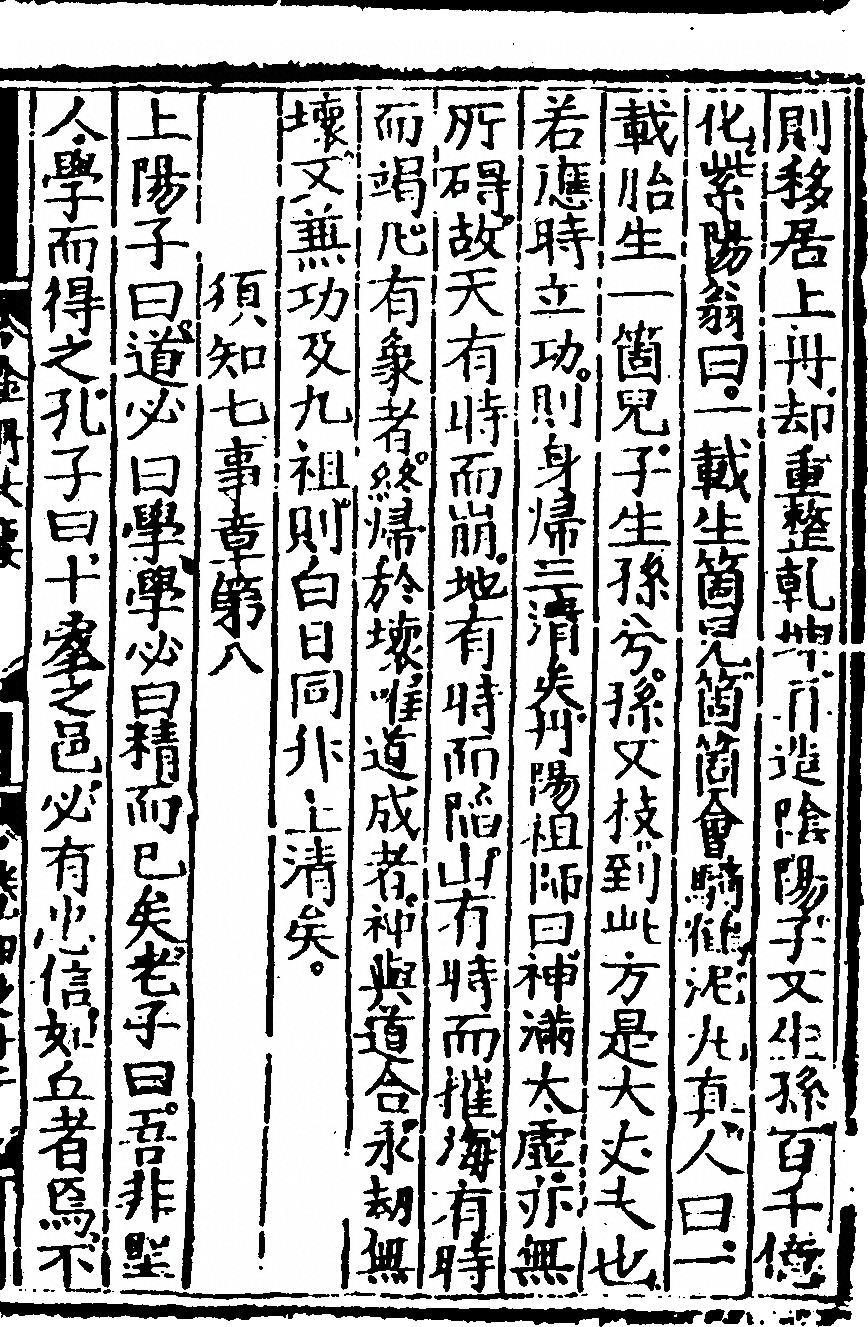 則移居上丹却重整乾坤再造陰陽子又生孫百千億
化紫陽翁曰一載生箇兒箇箇會騎鶴泥丸真人曰一
載胎生一箇兒子生孫兮孫又枝到此方是大丈夫也
若應時立功則身帰三清矣丹陽祖師曰神滿太虛亦無
所碍故天有時而崩地有時而陷山有時而摧海有時
而竭凡有象者終帰於壞唯道成者神與道合永劫無
壞又兼功及九祖則白日同升上清矣
須知七事章第八
上陽子曰道必曰學學必曰精而已矣老子曰吾非聖
人學而得之孔子曰十室之邑必有忠信如丘者焉不